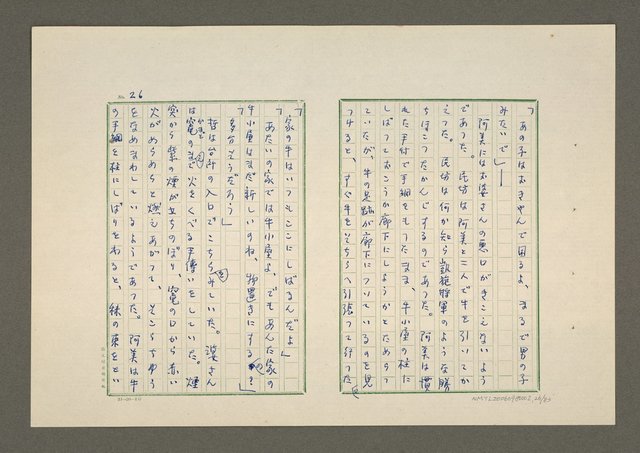 「あの子はおきゃんで困るよ、まるで男の子
みたいで」——
阿美にはお婆さんの悪口がきこえないよう
であった。民坊は阿美と二人で牛を引いてか
えった。民坊は何か知ら凱旋将軍のような勝
ちほこったかんじするのであった。阿美は慣
れた手付で手綱をもったまま、牛小屋の柱に
しばっておこうか廊下にしようかとためらっ
ていたが、牛の足跡が廊下についているのを見
つけると、すぐ牛をそちらへ引張って行った。
No. 26
「家の牛はいつもここにしばるんだよ」
「あたいの家では牛小屋よ、でもあんた家の
牛小屋はまだ新しいのね、物置きにするの?」
「多分そうだろう」
哲は台所の入口でこちらをみていた。婆さん
は竈のまえで火をくべる手傳いをしていた。煙
かまど
突から紫の煙が立ちのぼり、竈の口から赤い
火がめらめらと燃えあがって、そこらじゅう
をなめまわしているようであった。阿美は牛
の手綱を柱にしばりをわると、緑の束をとい
NMTL20060